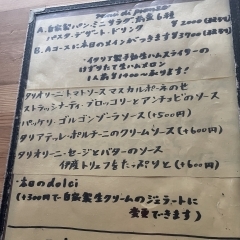 Menu di pranzo
A. 自家製パン・ミニサラダ・前菜6種
パスタ・デザート・ドリンク ¥2000(税別)
B. Aコースに本日のメインがつきます ¥3900(税別)
イタリア製手動生ハムスライサーの
けずりたて生ハムメロン
1人前¥1000~承ります!
タリオリーニ トマトソース マスカルポーネのせ
ストラッシナーティ・ブロッコリーとアンチョビのソース
パッケリ・ゴルゴンゾーラソース(+500円)
タリアテッレ・ポルチーニのクリームソース(+600円)
タリオリーニ・セージとバターのソース
伊産トリュフをたっぷりと(+600円)
・本日のdolci
(+300円で自家製生クリームのジェラートに
変更できます)